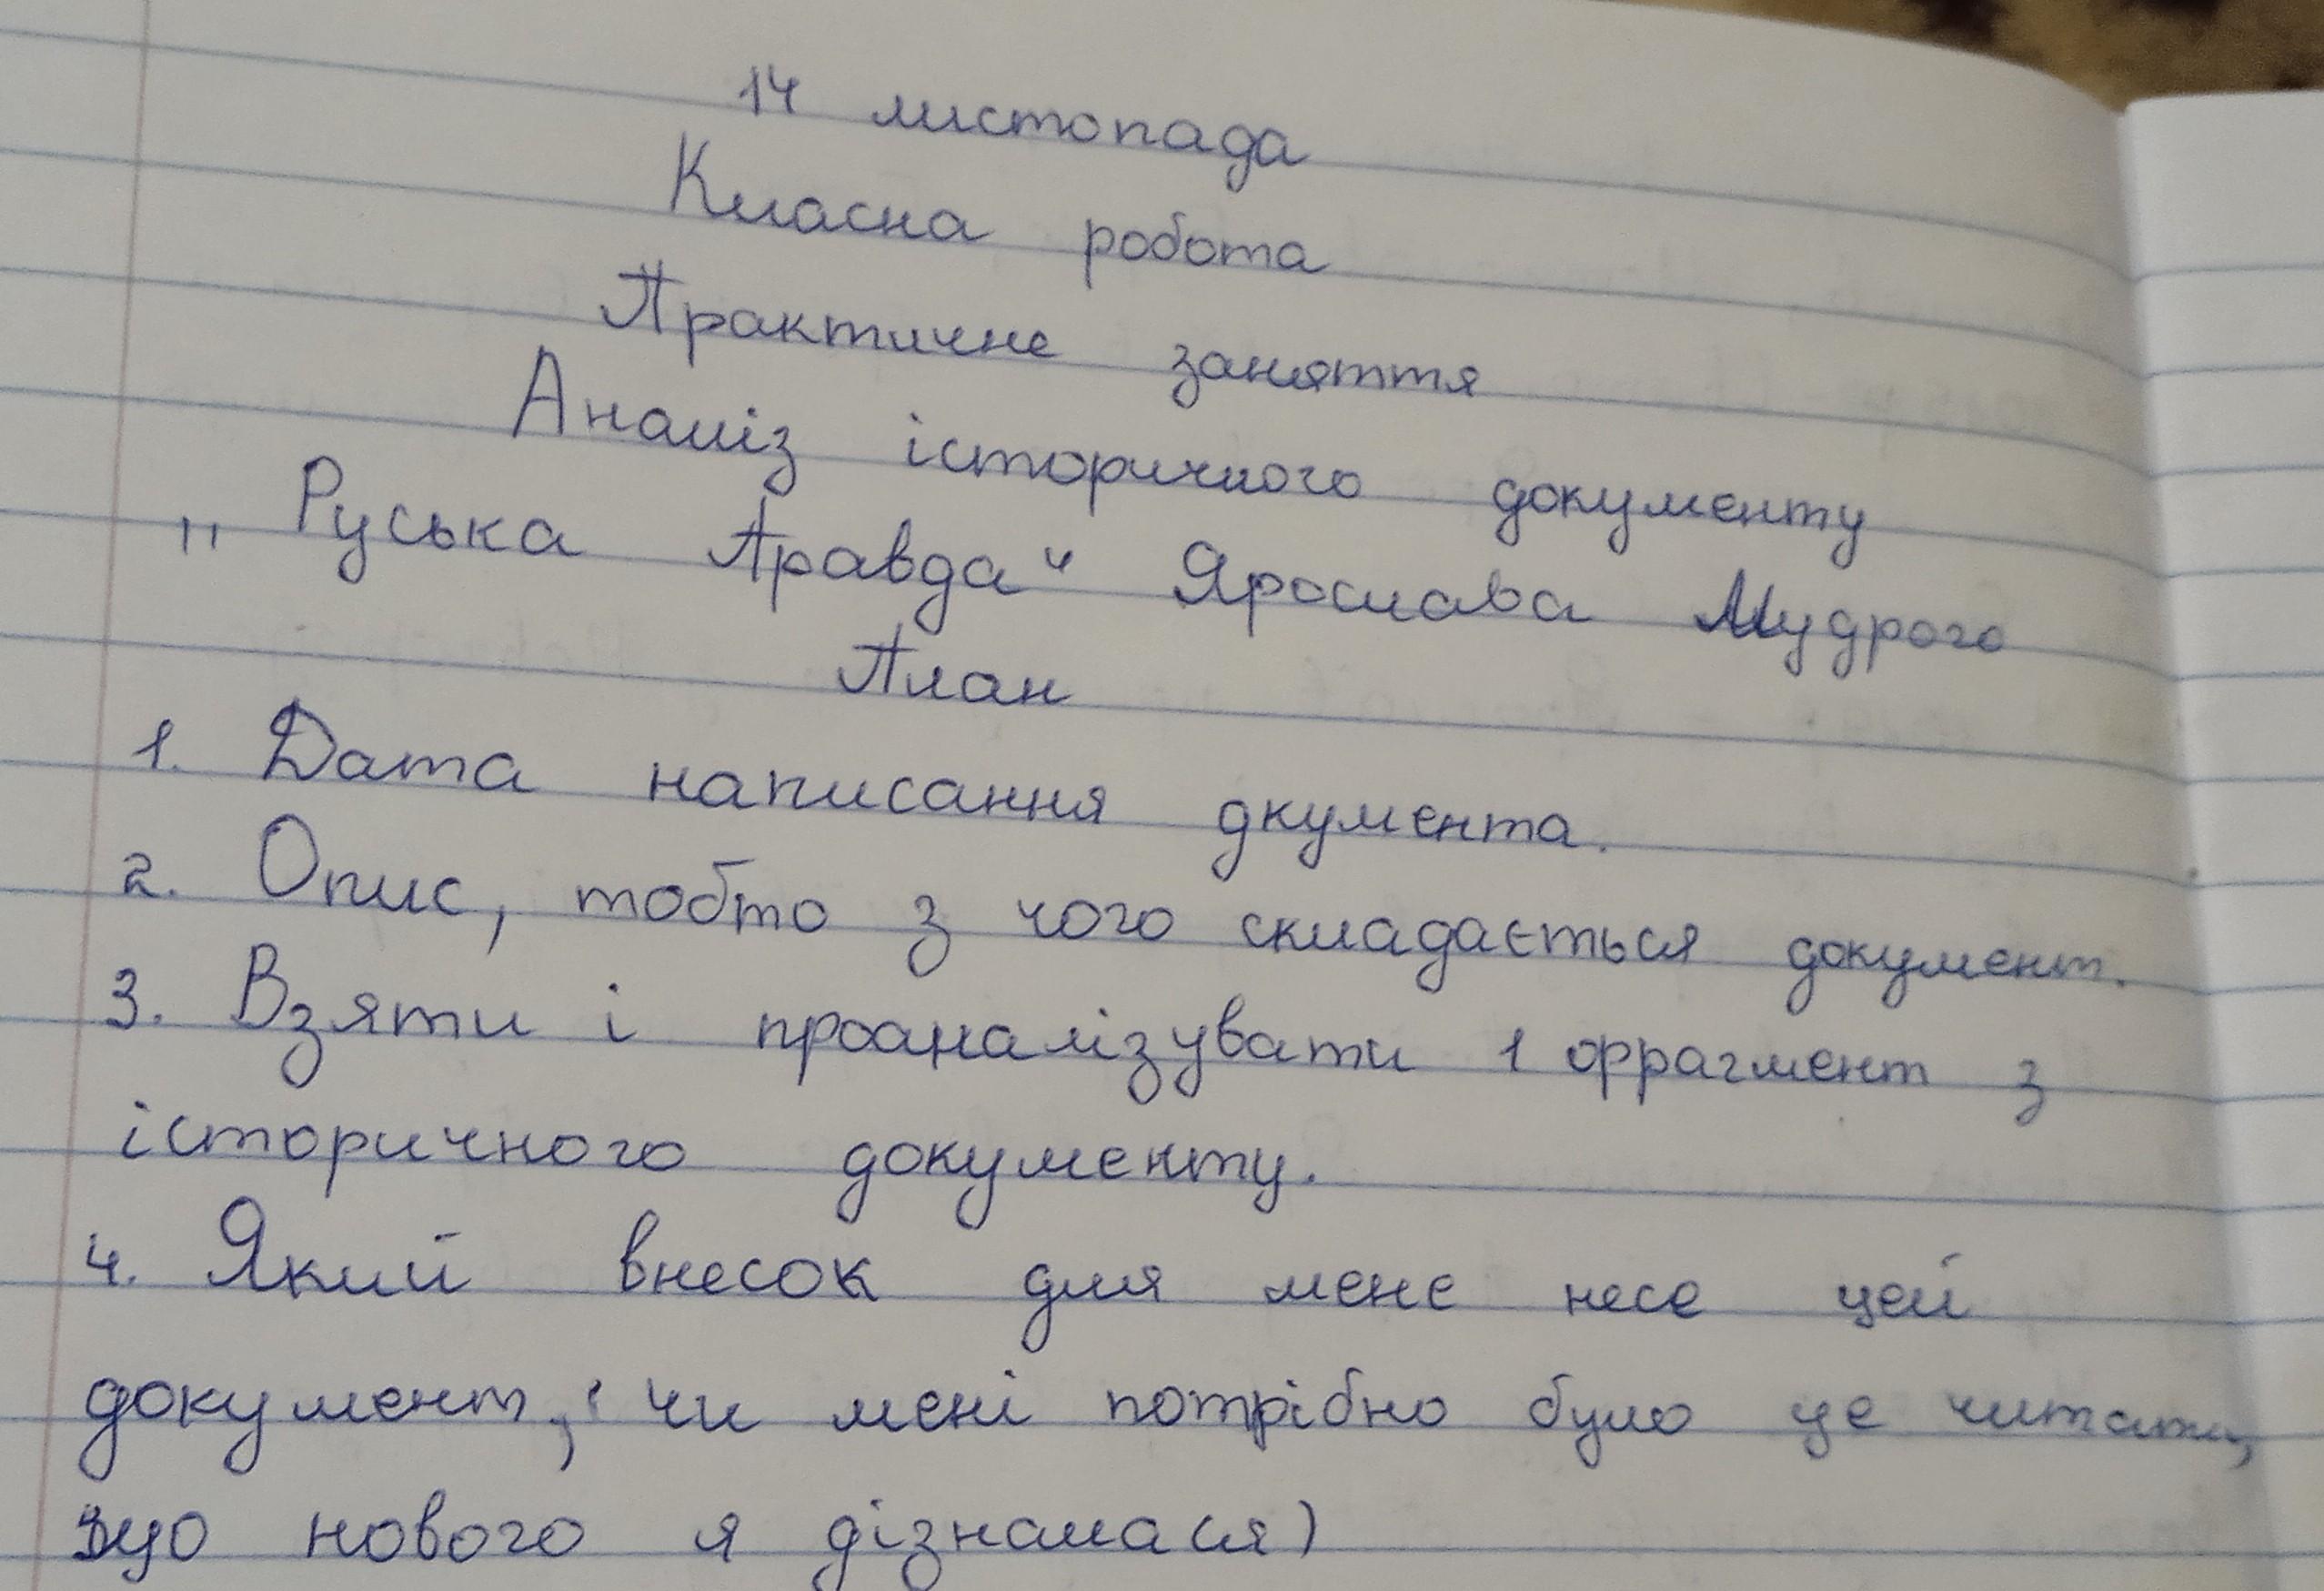 14 листопада
Класна робота
Практичне заняття
Аналіз історичного документу
„Руська Правда" Ярослава Мудрого
План
1. Дата написання дкумента.
2. Опис, тобто з чого складається документ.
3. Взяти і проаналізувати 1 фрагмент з
історичного документу.
4. Який внесок для мене несе цей
документ, (чи мені потрібно було це читати,
що нового я дізналася)